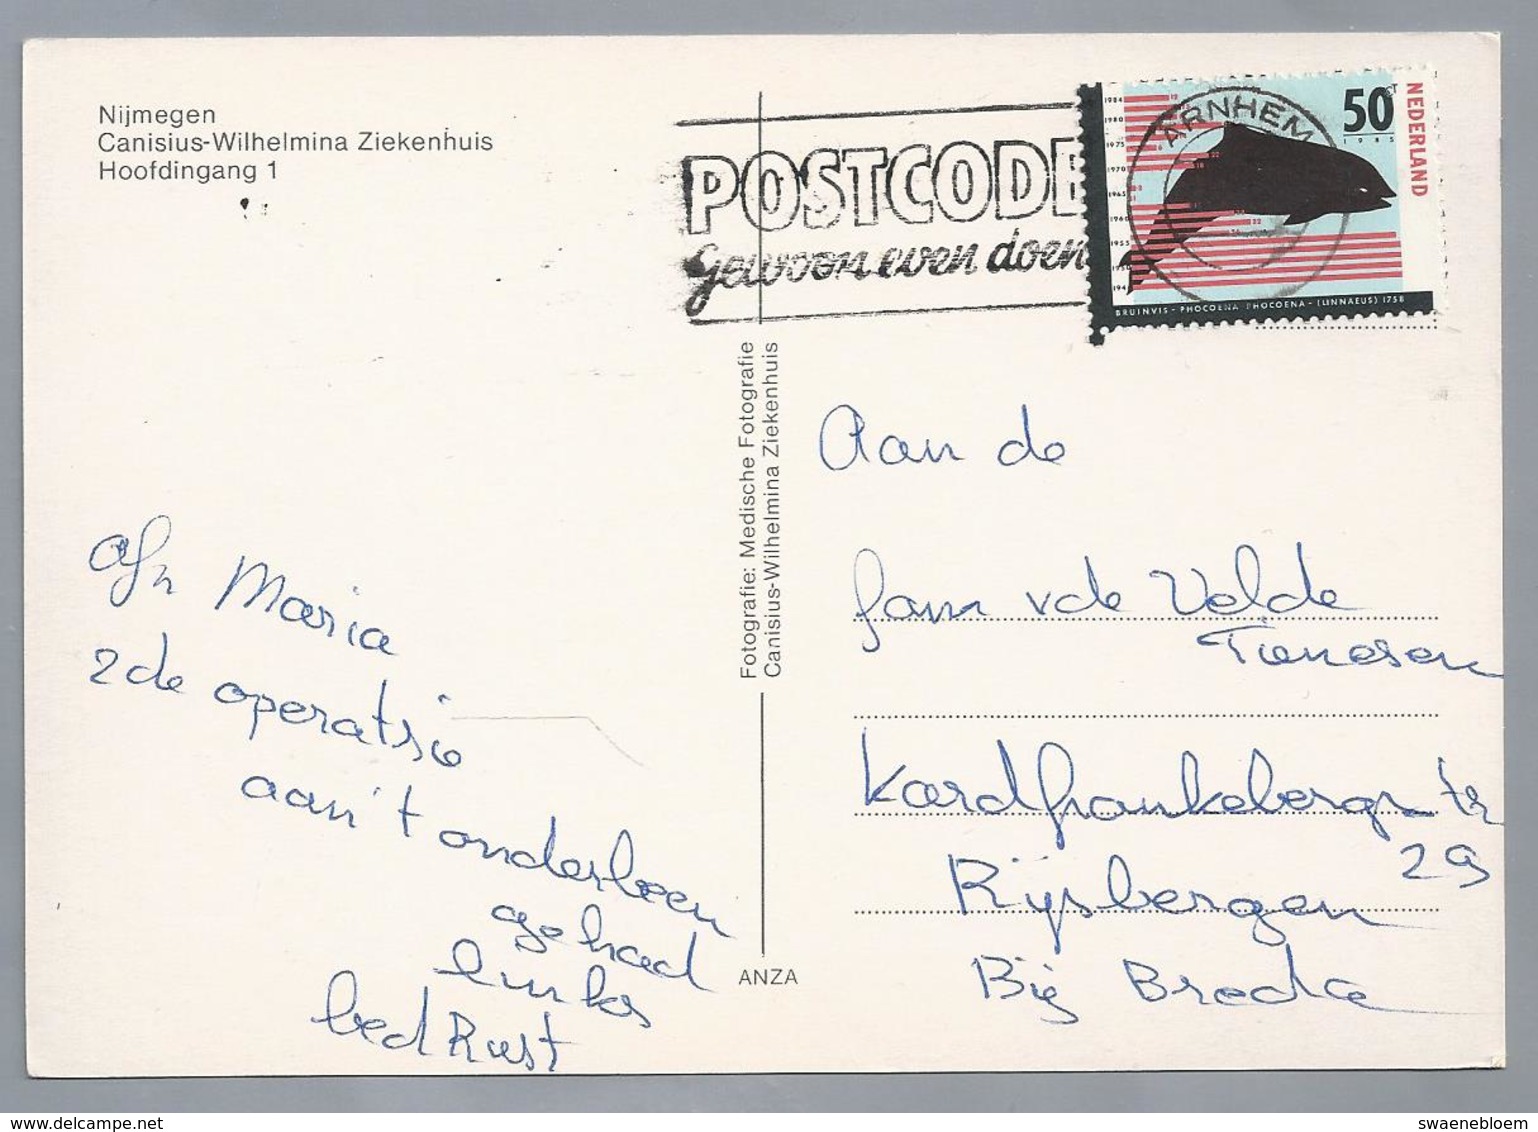 Nijmegen
Canisius-Wilhelmina Ziekenhuis
Hoofdingang 1
POSTCODE
gewoon even doen
ARNHEM
50
1985
NEDERLAND
1984
1980
1975
1970
1965
1960
1955
1950
194
BRUINVIS - PHOCOENA PHOCOENA - (LINNAEUS) 1758
Fotografie: Medische Fotografie
Canisius-Wilhelmina Ziekenhuis
ANZA
Afz Maria
2de operatsie
aan't onderbeen
gehad
links
bedRust
Aan de
Fam vde Velde
Tienesen
Kardfrankebergstr
29
Rijsbergen
Bij Breda
delcampe.net
swaenebloem